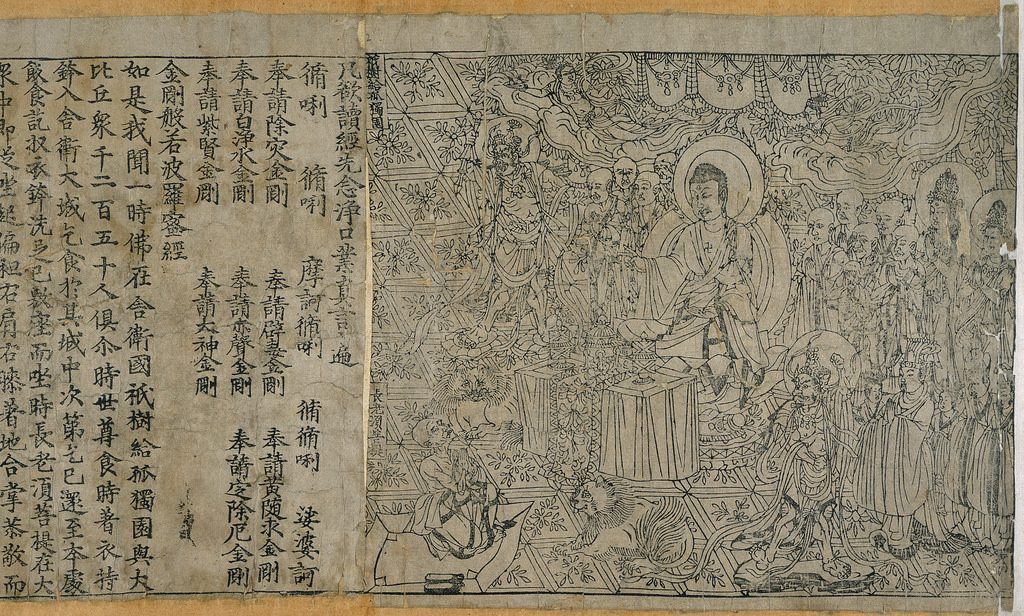 祇樹給孤獨園
長老須菩提
凡欲讀經先念淨口業真言一遍
脩唎 脩唎 摩訶脩唎 脩脩唎 娑婆訶
奉請除灾金剛 奉請辟毒金剛 奉請黃随求金剛
奉請白淨水金剛 奉請赤聲金剛 奉請定除厄金剛
奉請紫賢金剛 奉請大神金剛
金剛般若波羅蜜經
如是我聞一時佛在舍衛國祇樹給孤獨園與大
比丘衆千二百五十人俱尒時世尊食時著衣持
鉢入舍衛大城乞食於其城中次第乞已還至本處
飯食訖收衣鉢洗足已敷座而坐時長老須菩提在大
衆中即從坐起偏袒右肩右膝著地合掌恭敬而